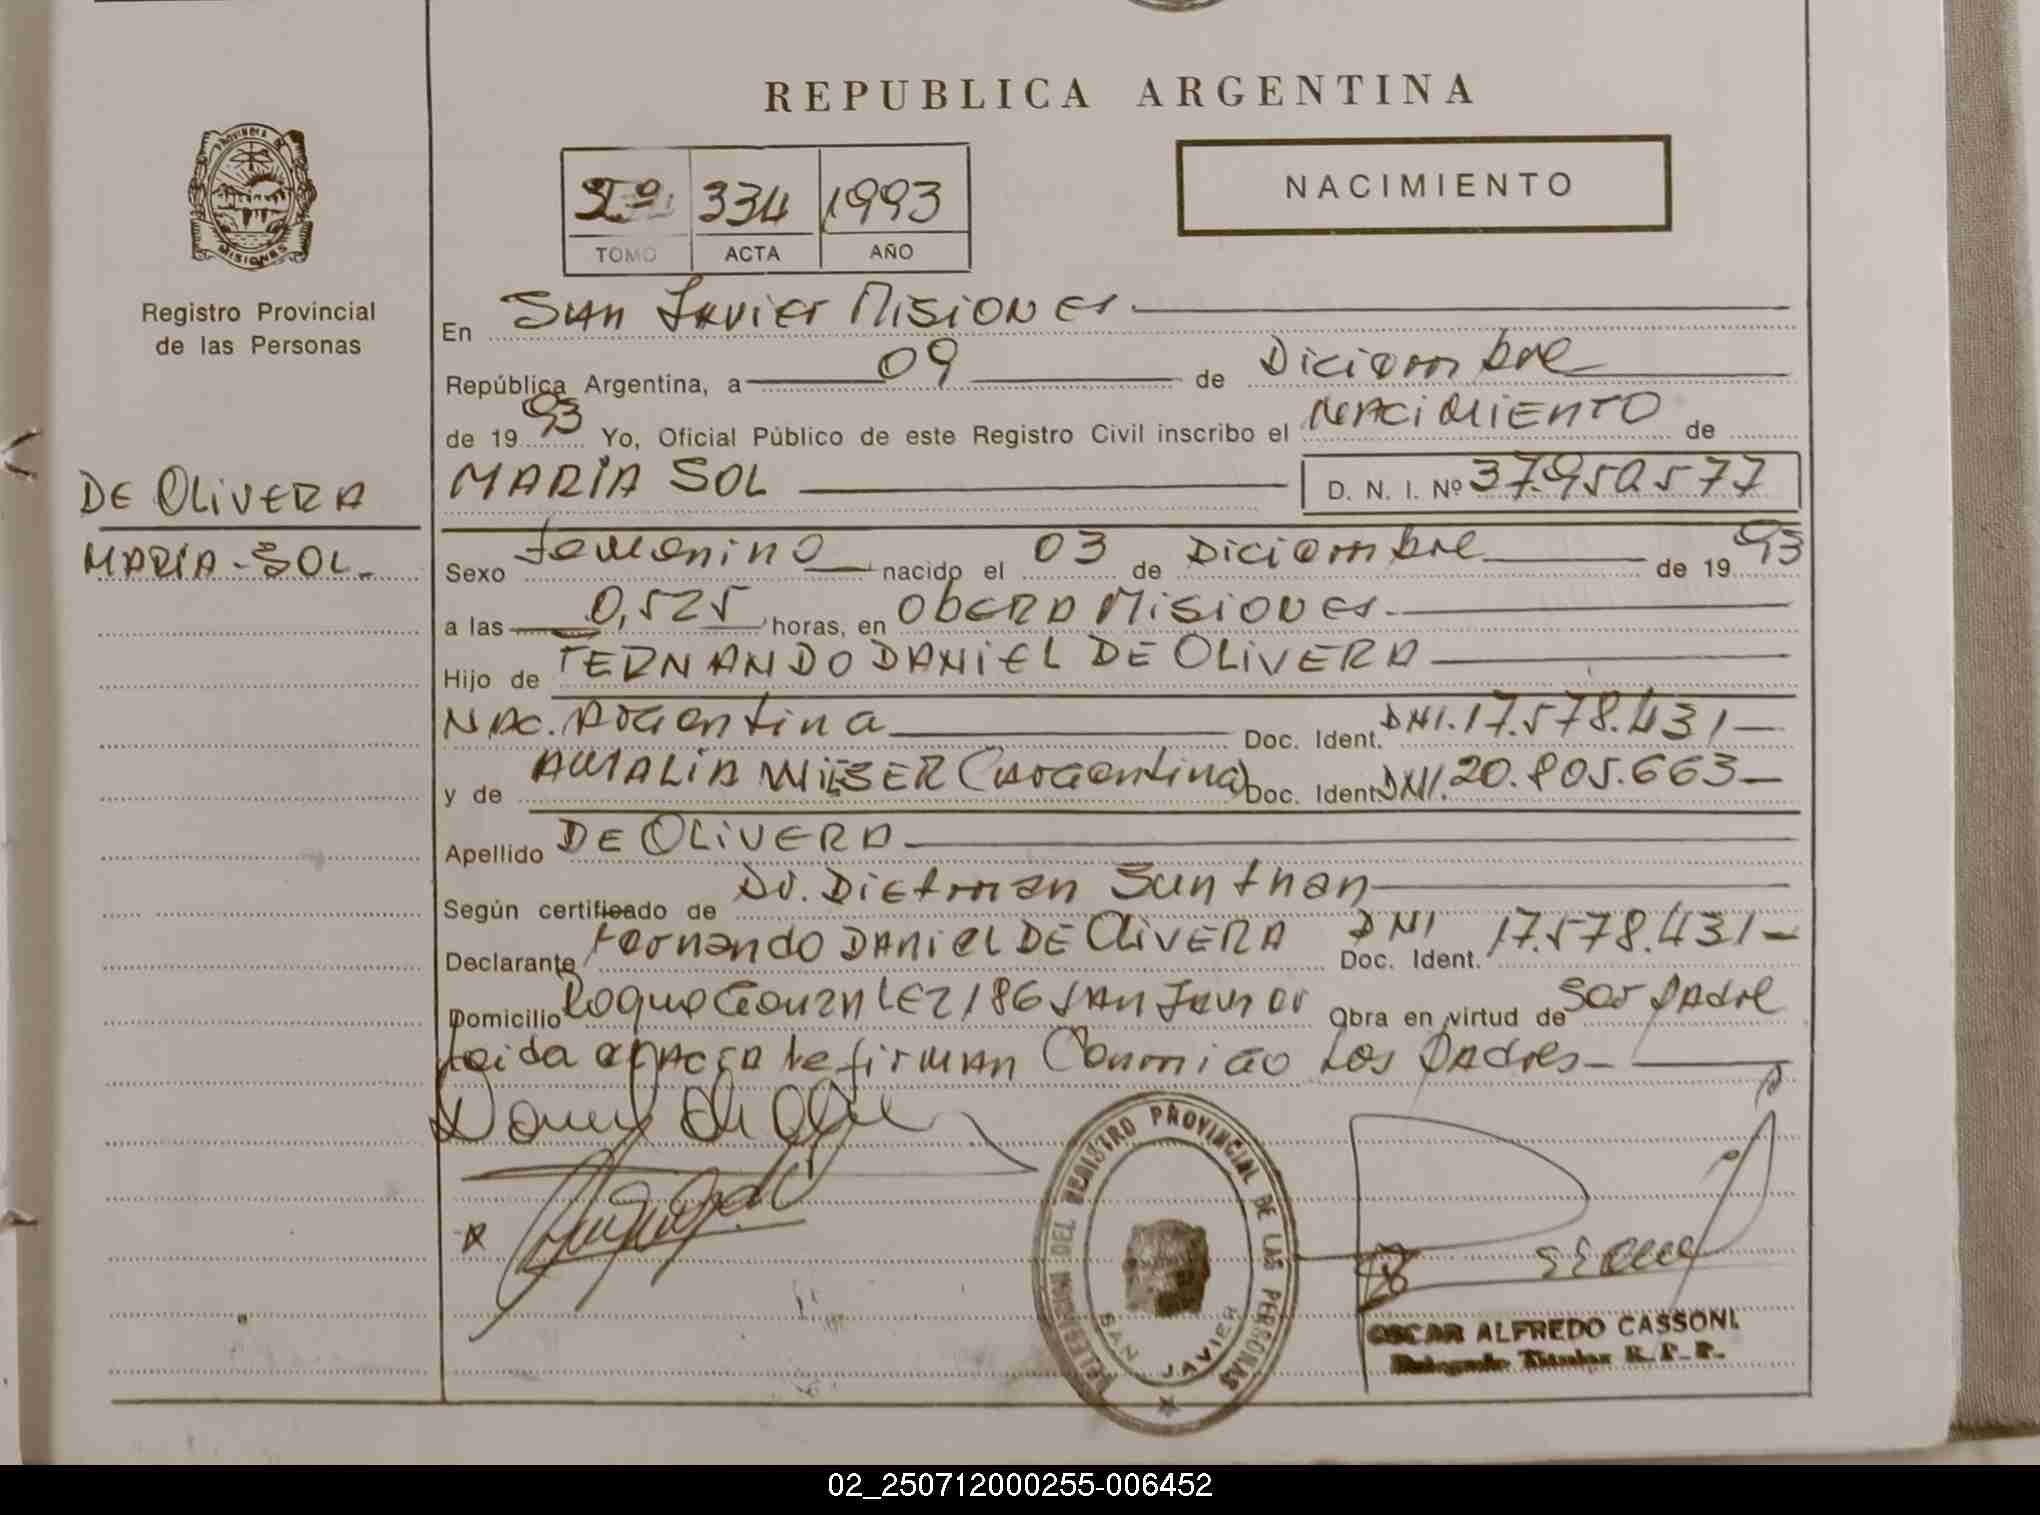 REPUBLICA ARGENTINA
PROVINCIA DE
MISIONES
Registro Provincial
de las Personas
2º 334 1993
TOMO ACTA AÑO
NACIMIENTO
En San Javier Misiones
República Argentina, a 09 de Diciembre
de 1993 Yo, Oficial Público de este Registro Civil inscribo el NACIMIENTO de
DE OLIVERA
MARIA SOL D. N. I. Nº 37.950.577
MARIA-SOL
Sexo femenino nacido el 03 de Diciembre de 1993
a las 0,525 horas, en OBERA MISIONES
Hijo de FERNANDO DANIEL DE OLIVERA
NAC. Argentina Doc. Ident. DNI. 17.578.431
y de AMALIA WIESER (Argentina) Doc. Ident DNI. 20.805.663
Apellido DE OLIVERA
Según certificado de Dr. Dietman
Declarante Fernando DANIEL DE OLIVERA DNI Doc. Ident. 17.578.431
Domicilio Roque Gonzalez 186 San Javier Obra en virtud de Ser Padre
Leida el Acta la firman Conmigo Los Padres
DELEGACION DEL REGISTRO PROVINCIAL DE LAS PERSONAS
SAN JAVIER
OSCAR ALFREDO CASSONI
Delegado Titular R. P. P.
02_250712000255-006452